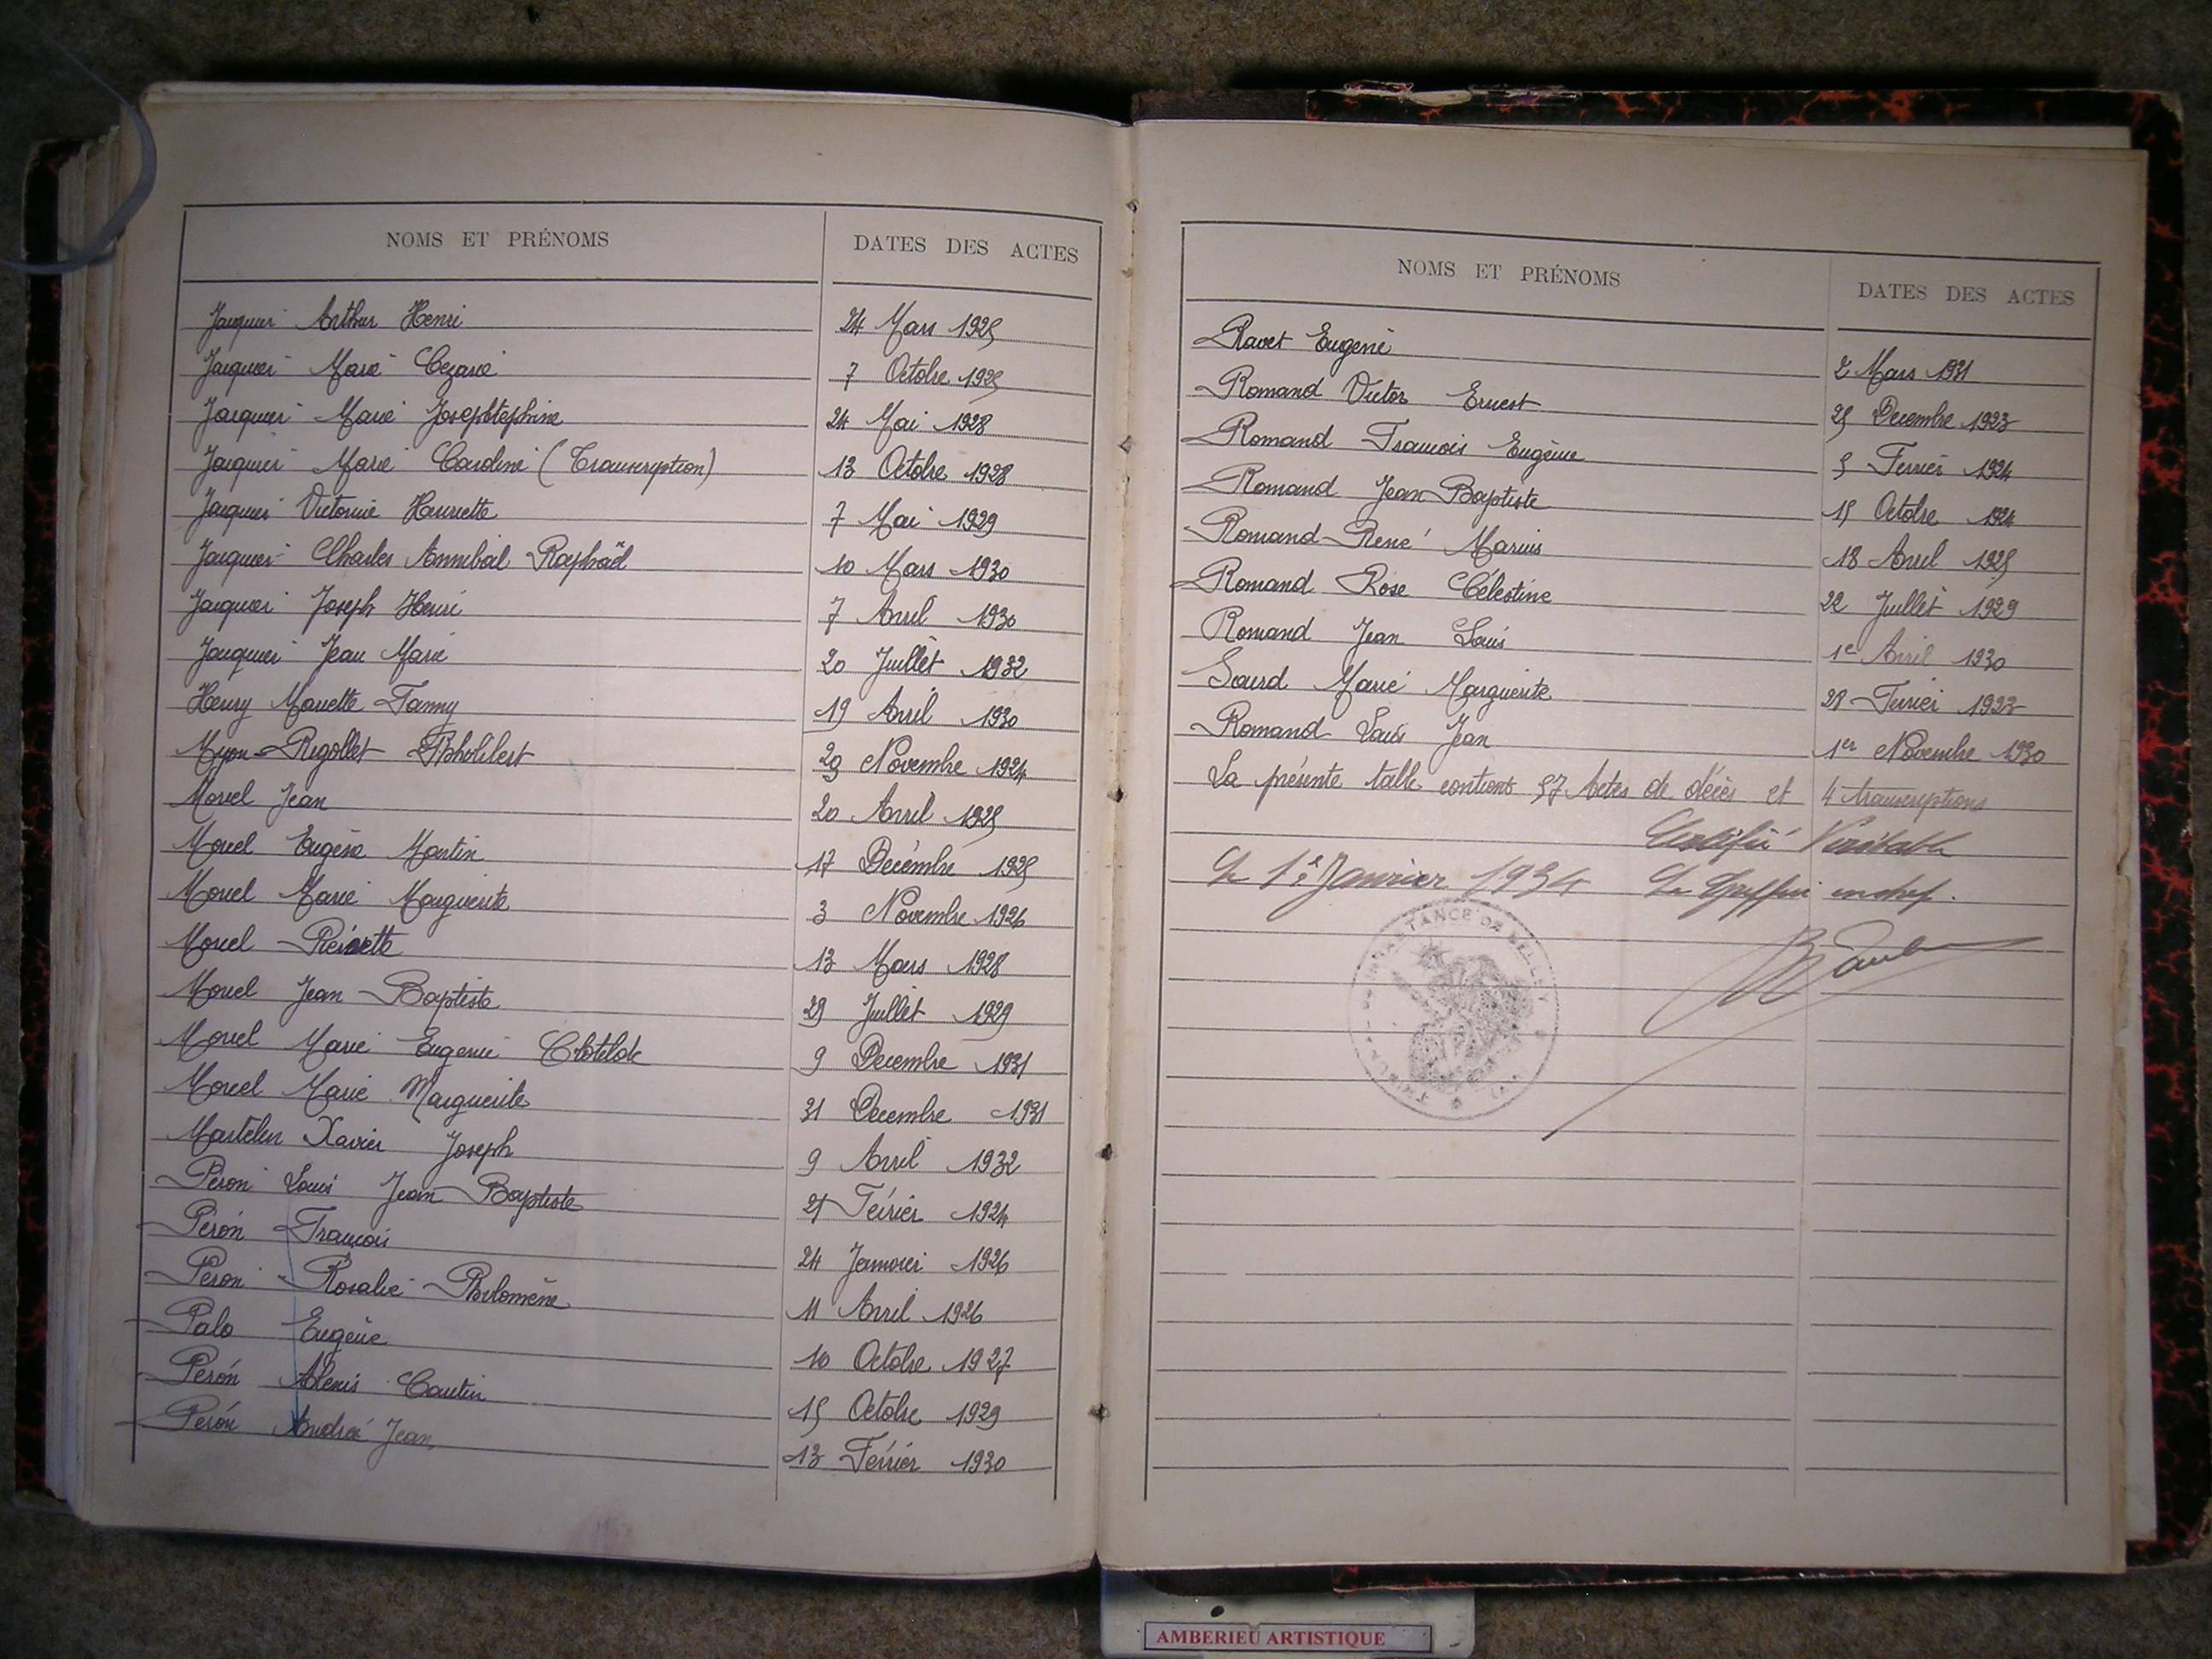 NOMS ET PRÉNOMS DATES DES ACTES
Jacquier Arthur Henri 24 Mars 1925
Jacquier Marie Cezarie 7 Octobre 1925
Jacquier Marie Josephtephine 24 Mai 1928
Jacquier Marie Caroline (Transcription) 13 Octobre 1928
Jacquier Victorine Henriette 7 Mai 1929
Jacquier Charles Annibal Raphaël 10 Mars 1930
Jacquier Joseph Henri 7 Avril 1930
Jacquier Jean Marie 20 Juillet 1932
Henry Mariette Fanny 19 Avril 1930
Myon-Rigollet Philibert 29 Novembre 1924
Morel Jean 20 Avril 1925
Morel Eugène Martin 17 Decémbre 1925
Morel Marie Marguerite 3 Novembre 1926
Morel 13 Mars 1928
Morel Jean-Baptiste 29 Juillet 1929
Morel Marie Eugenie Clotilde 9 Decembre 1931
Morel Marie Marguerite 31 Decembre 1931
Martelin Xavier Joseph 9 Avril 1932
Peron Louis Jean-Baptiste Février 1924
Peron François 24 Janvier 1926
Peron Rosalie Philomène 11 Avril 1926
Palo Eugène 10 Octobre 1927
Peron Alexis 15 Octobre 1929
Peron André Jean 13 Février 1930
NOMS ET PRÉNOMS DATES DES ACTES
Ravet Eugène 2 Mars 1931
Romand Victor Ernest 25 Decembre 1923
Romand François Eugène 5 Fevrier 1924
Romand Jean-Baptiste 15 Octobre 1924
Romand René Marius 18 Avril 1925
Romand Rose Célestine 22 Juillet 1929
Romand Jean Louis 1e Avril 1930
Sourd Marie Marguerite 28 Fevrier 1923
Romand Louis Jean 1er Novembre 1930
La présente table contient 57 Actes de décès et 4 transcriptions
Certifié Véritable
Le 1er Janvier 1934 Le Greffier en chef.
TANCE DE BELLEY
AMBERIEU ARTISTIQUE